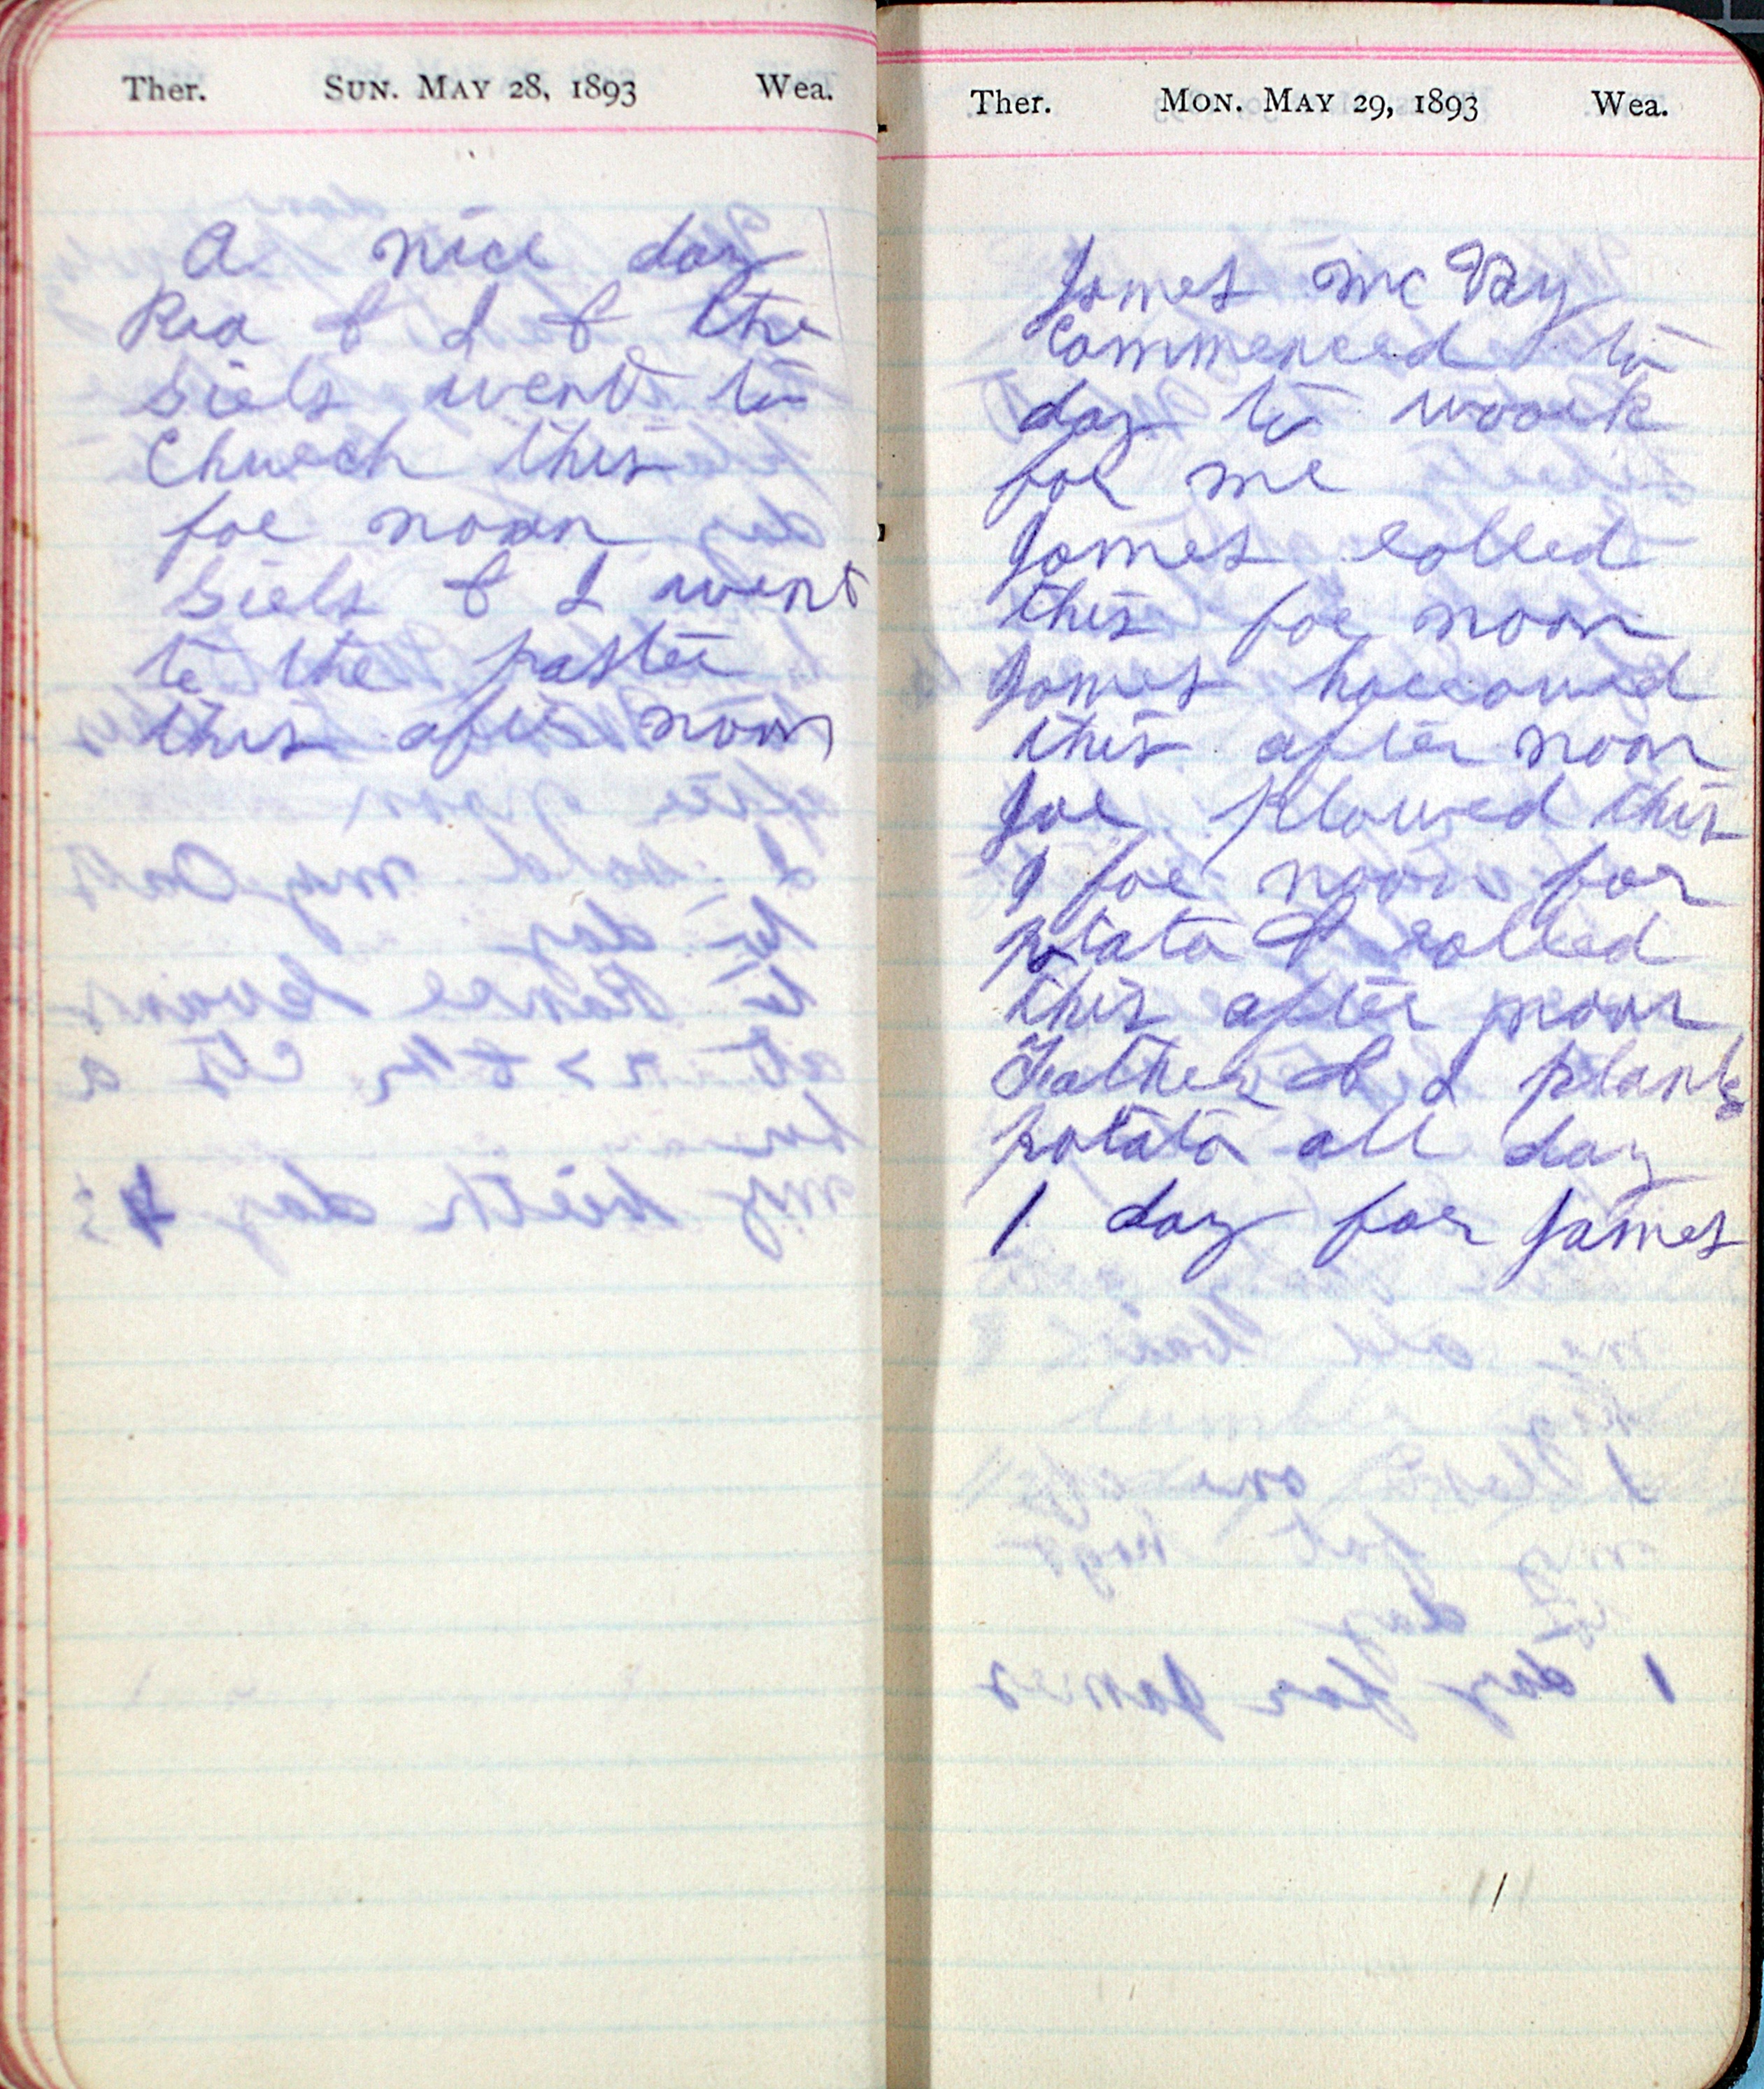 Ther. SUN. MAY 28, 1893 Wea.
A nice day
Rea & I & the
Girls went to
Church this
for noon
Girls & I went
to the paster
this after noon
Ther. MON. MAY 29, 1893 Wea.
James Mc
Commenced to
day to woork
for me
James rolled
this for noon
James harrowed
this after noon
Joe plowed this
for noon for
potato & rolled
this after noon
Father & I plant
potato all day
1 day for James